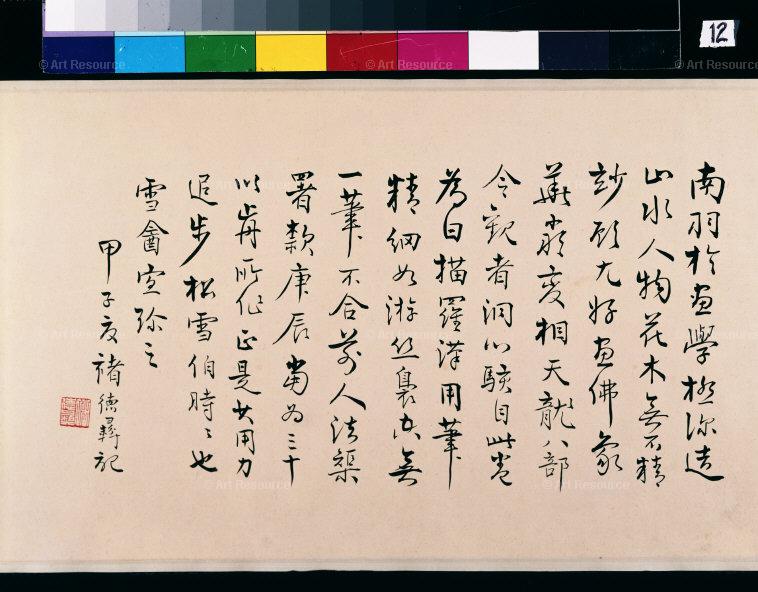 南羽於画學極深造
山水人物花木無不精
妙顧尤好画佛象
華嚴變相天龍八部
令觀者洞心駭目此卷
為白描羅漢用筆
精細如游丝裊空無
一筆不合前人法槼
署款庚辰當为三十
以前所作正是其用力
追步松雪伯時時也
雪盦宝弥之
甲子夏褚德彝記
12
© Art Resource
© Art Resource
© Art Resource
© Art Resource
© Art Resource
© Art Resource
© Art Resource
© Art Resource
© Art Resource